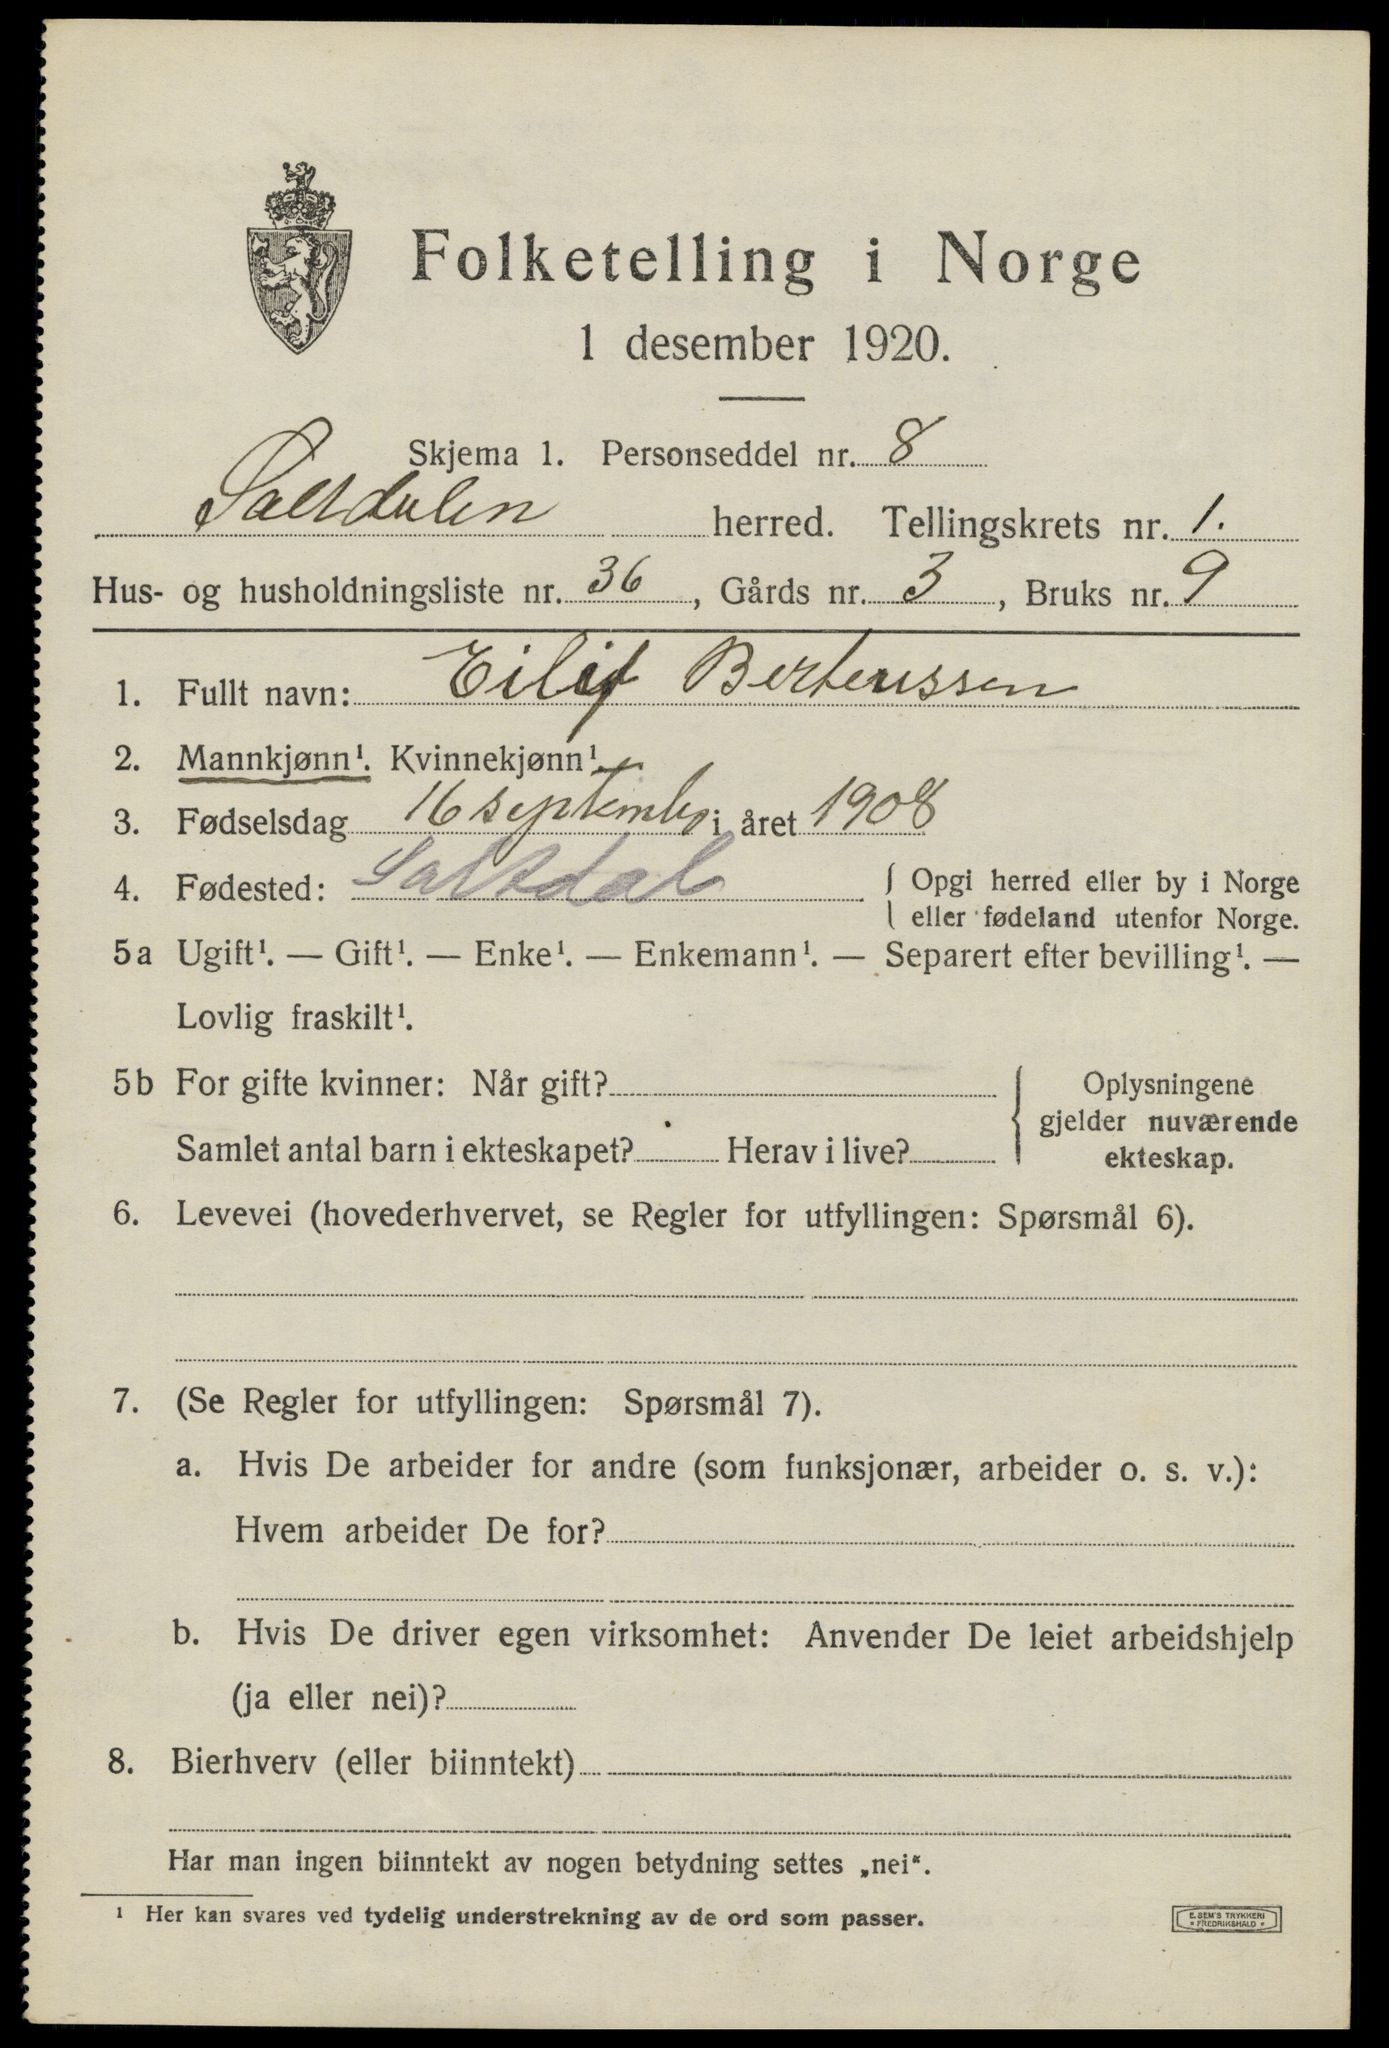 Folketelling i Norge
1 desember 1920.
Skjema 1. Personseddel nr. 8
Saltdalen herred. Tellingskrets nr. 1.
Hus- og husholdningsliste nr. 36, Gårds nr. 3, Bruks nr. 9
1. Fullt navn: Eilif Berteussen
2. Mannkjønn¹. Kvinnekjønn¹.
3. Fødselsdag 16 septembr i året 1908
4. Fødested: Saltdal { Opgi herred eller by i Norge
eller fødeland utenfor Norge.
5a Ugift¹. — Gift¹. — Enke¹. — Enkemann¹. — Separert efter bevilling¹. —
Lovlig fraskilt¹.
5b For gifte kvinner: Når gift? { Oplysningene
gjelder nuværende
Samlet antal barn i ekteskapet? Herav i live? ekteskap.
6. Levevei (hovederhvervet, se Regler for utfyllingen: Spørsmål 6).
7. (Se Regler for utfyllingen: Spørsmål 7).
a. Hvis De arbeider for andre (som funksjonær, arbeider o. s. v.):
Hvem arbeider De for?
b. Hvis De driver egen virksomhet: Anvender De leiet arbeidshjelp
(ja eller nei)?
8. Bierhverv (eller biinntekt)
Har man ingen biinntekt av nogen betydning settes „nei“.
¹ Her kan svares ved tydelig understrekning av de ord som passer.
E. SEM'S TRYKKERI
* FREDRIKSHALD *